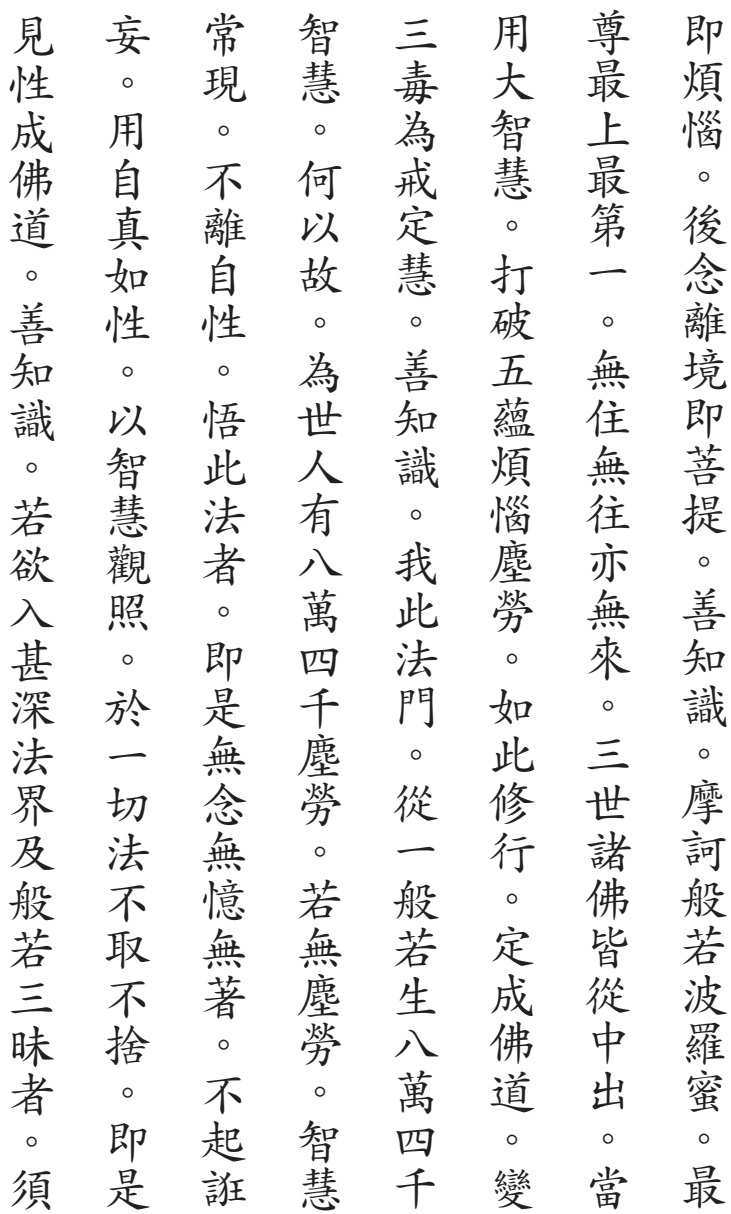 即煩惱。後念離境即菩提。善知識。摩訶般若波羅蜜。最
尊最上最第一。無住無往亦無來。三世諸佛皆從中出。當
用大智慧。打破五蘊煩惱塵勞。如此修行。定成佛道。變
三毒為戒定慧。善知識。我此法門。從一般若生八萬四千
智慧。何以故。為世人有八萬四千塵勞。若無塵勞。智慧
常現。不離自性。悟此法者。即是無念無憶無著。不起誑
妄。用自真如性。以智慧觀照。於一切法不取不捨。即是
見性成佛道。善知識。若欲入甚深法界及般若三昧者。須